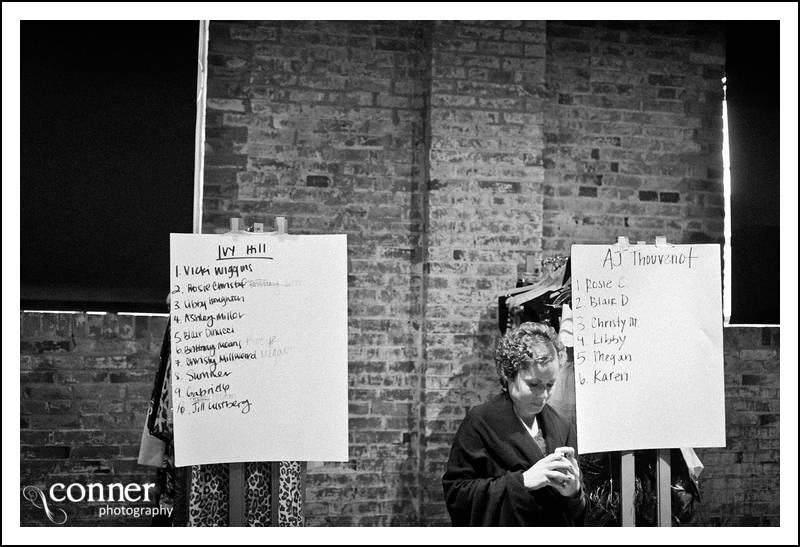 IVY Hill
1. Vicki Wiggins
2. Rosie Christof
3. Libby Houghton
4. Ashley Millor
5 Blair Dinucci
6. Brittany Means
7. Christy Millweard Megan
8. Summer
9. Gabrielle
10. Jill Lustberg
AJ Thouvenot
1 Rosie C.
2 Blair D
3 Christy M.
4 Libby
5 Megan
6. Karen
conner
photography